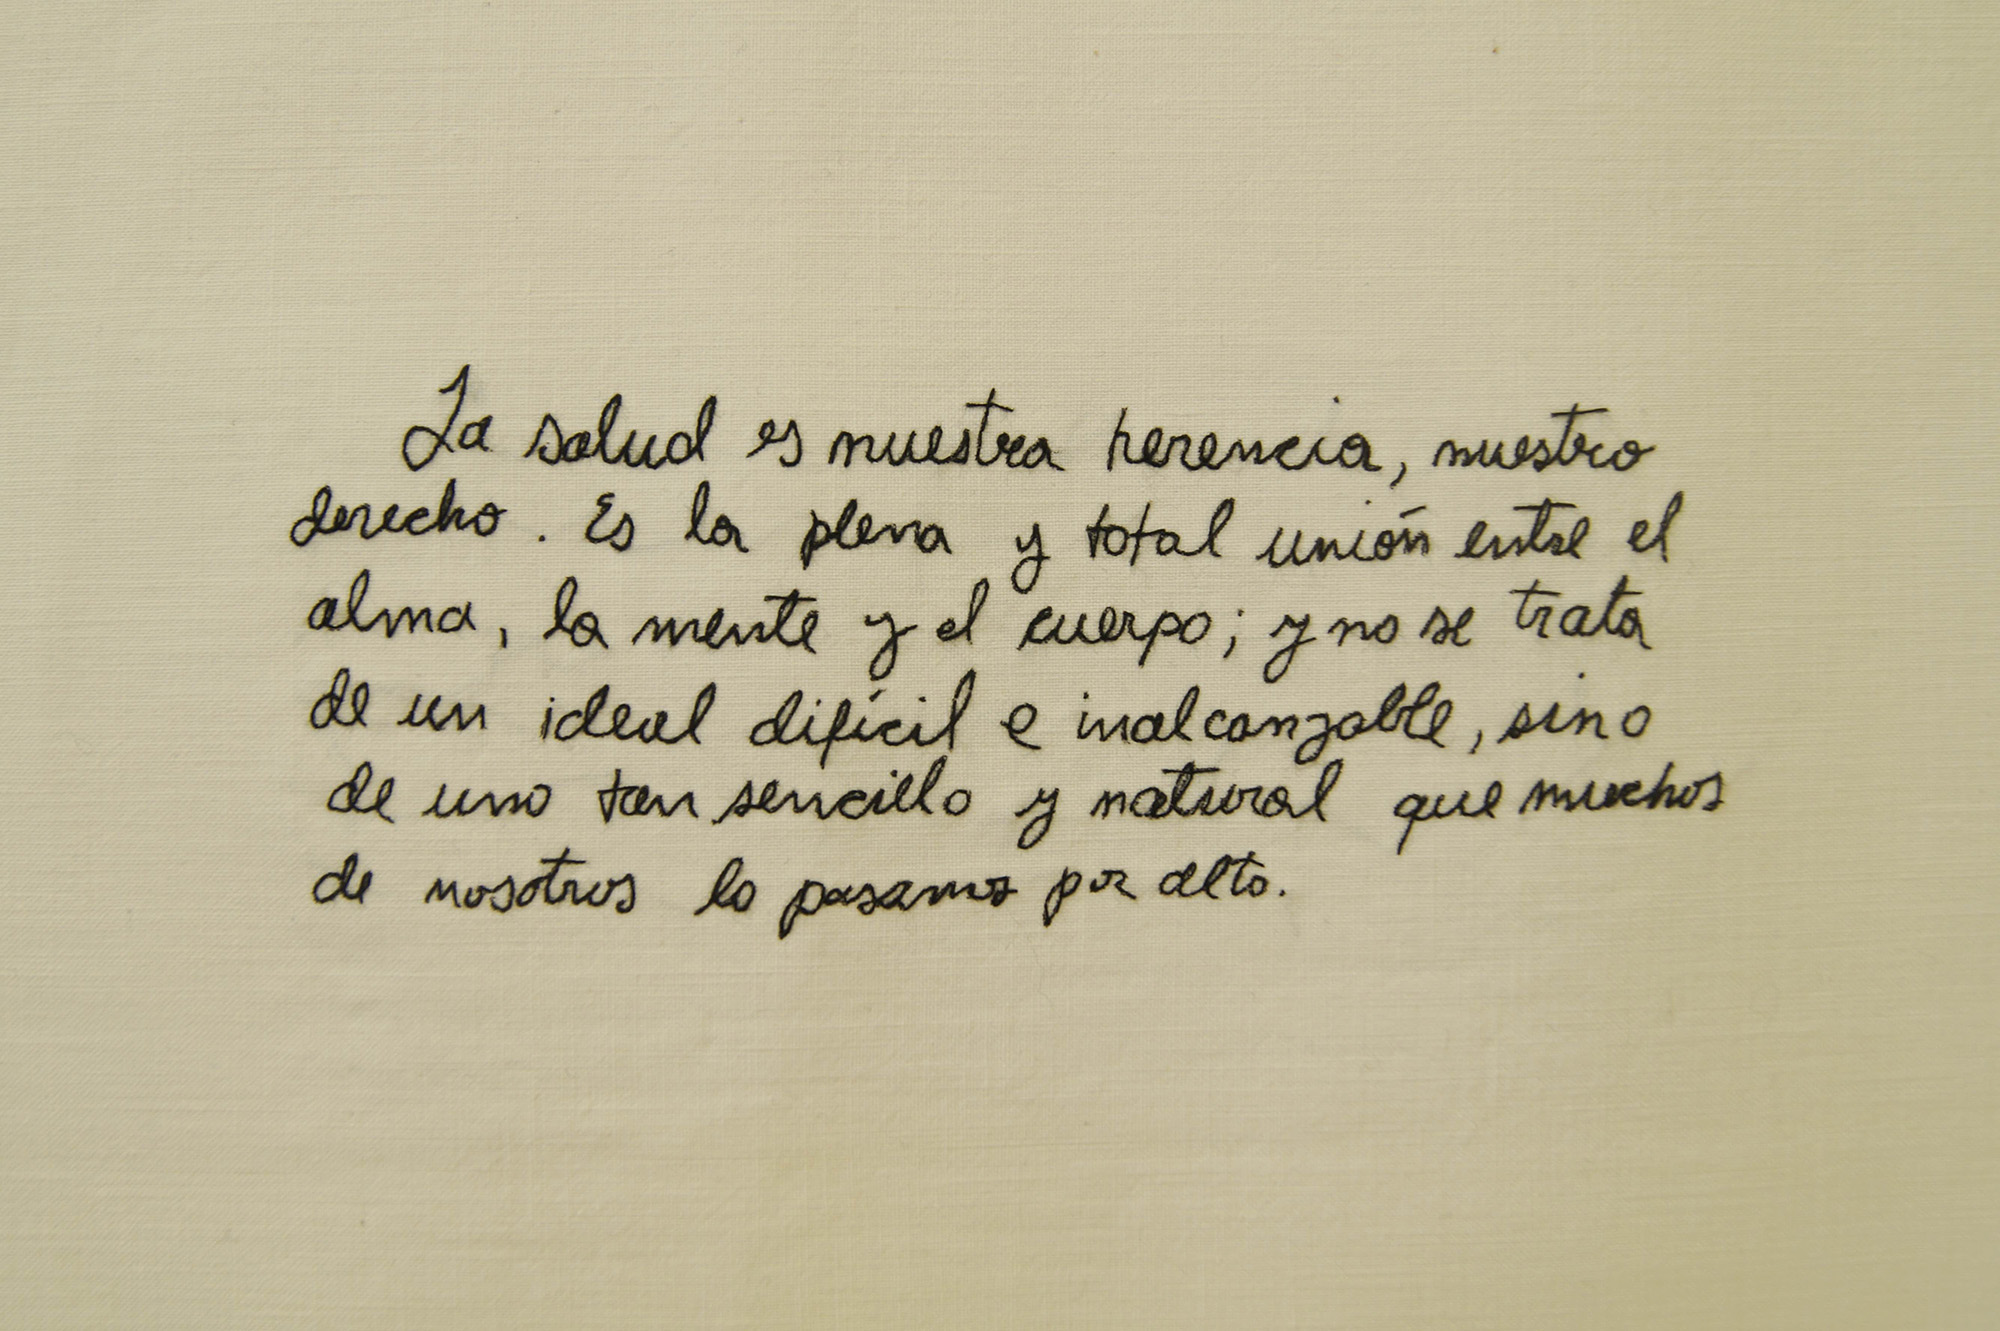 La salud es nuestra herencia, nuestro
derecho. Es la plena y total unión entre el
alma, la mente y el cuerpo; y no se trata
de un ideal difícil e inalcanzable, sino
de uno tan sencillo y natural que muchos
de nosotros lo pasamos por alto.